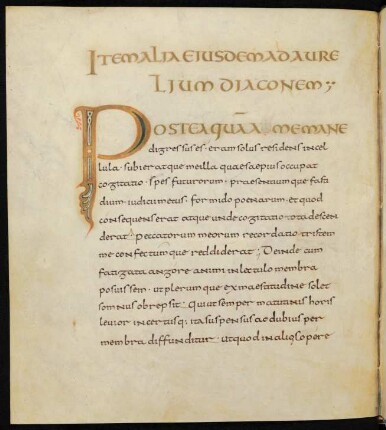 ITEM ALIA EIUSDEM AD AURE
LIUM DIACONEM;
POSTEAQUAM A ME MANE
digressus es · eram solus residens in cel
lula · subiit atque me illa quae saepius occupat
cogitatio · spes futurorum · praesentiumque fasti
dium · iudicii metus · formido poenarum · et quod
consequens erat atque unde cogitatio tota descen
derat · peccatorum meorum recordatio tristem
me confectumque reddiderat; Deinde cum
fatigata angore animi in lectulo membra
posuissem · ut plerumque ex maestitudine solet
somnus obrepsit · Qui ut semper matutinis horis
levior incertusq; ita suspensus ac dubius per
membra diffunditur · ut quod in aliq; opere